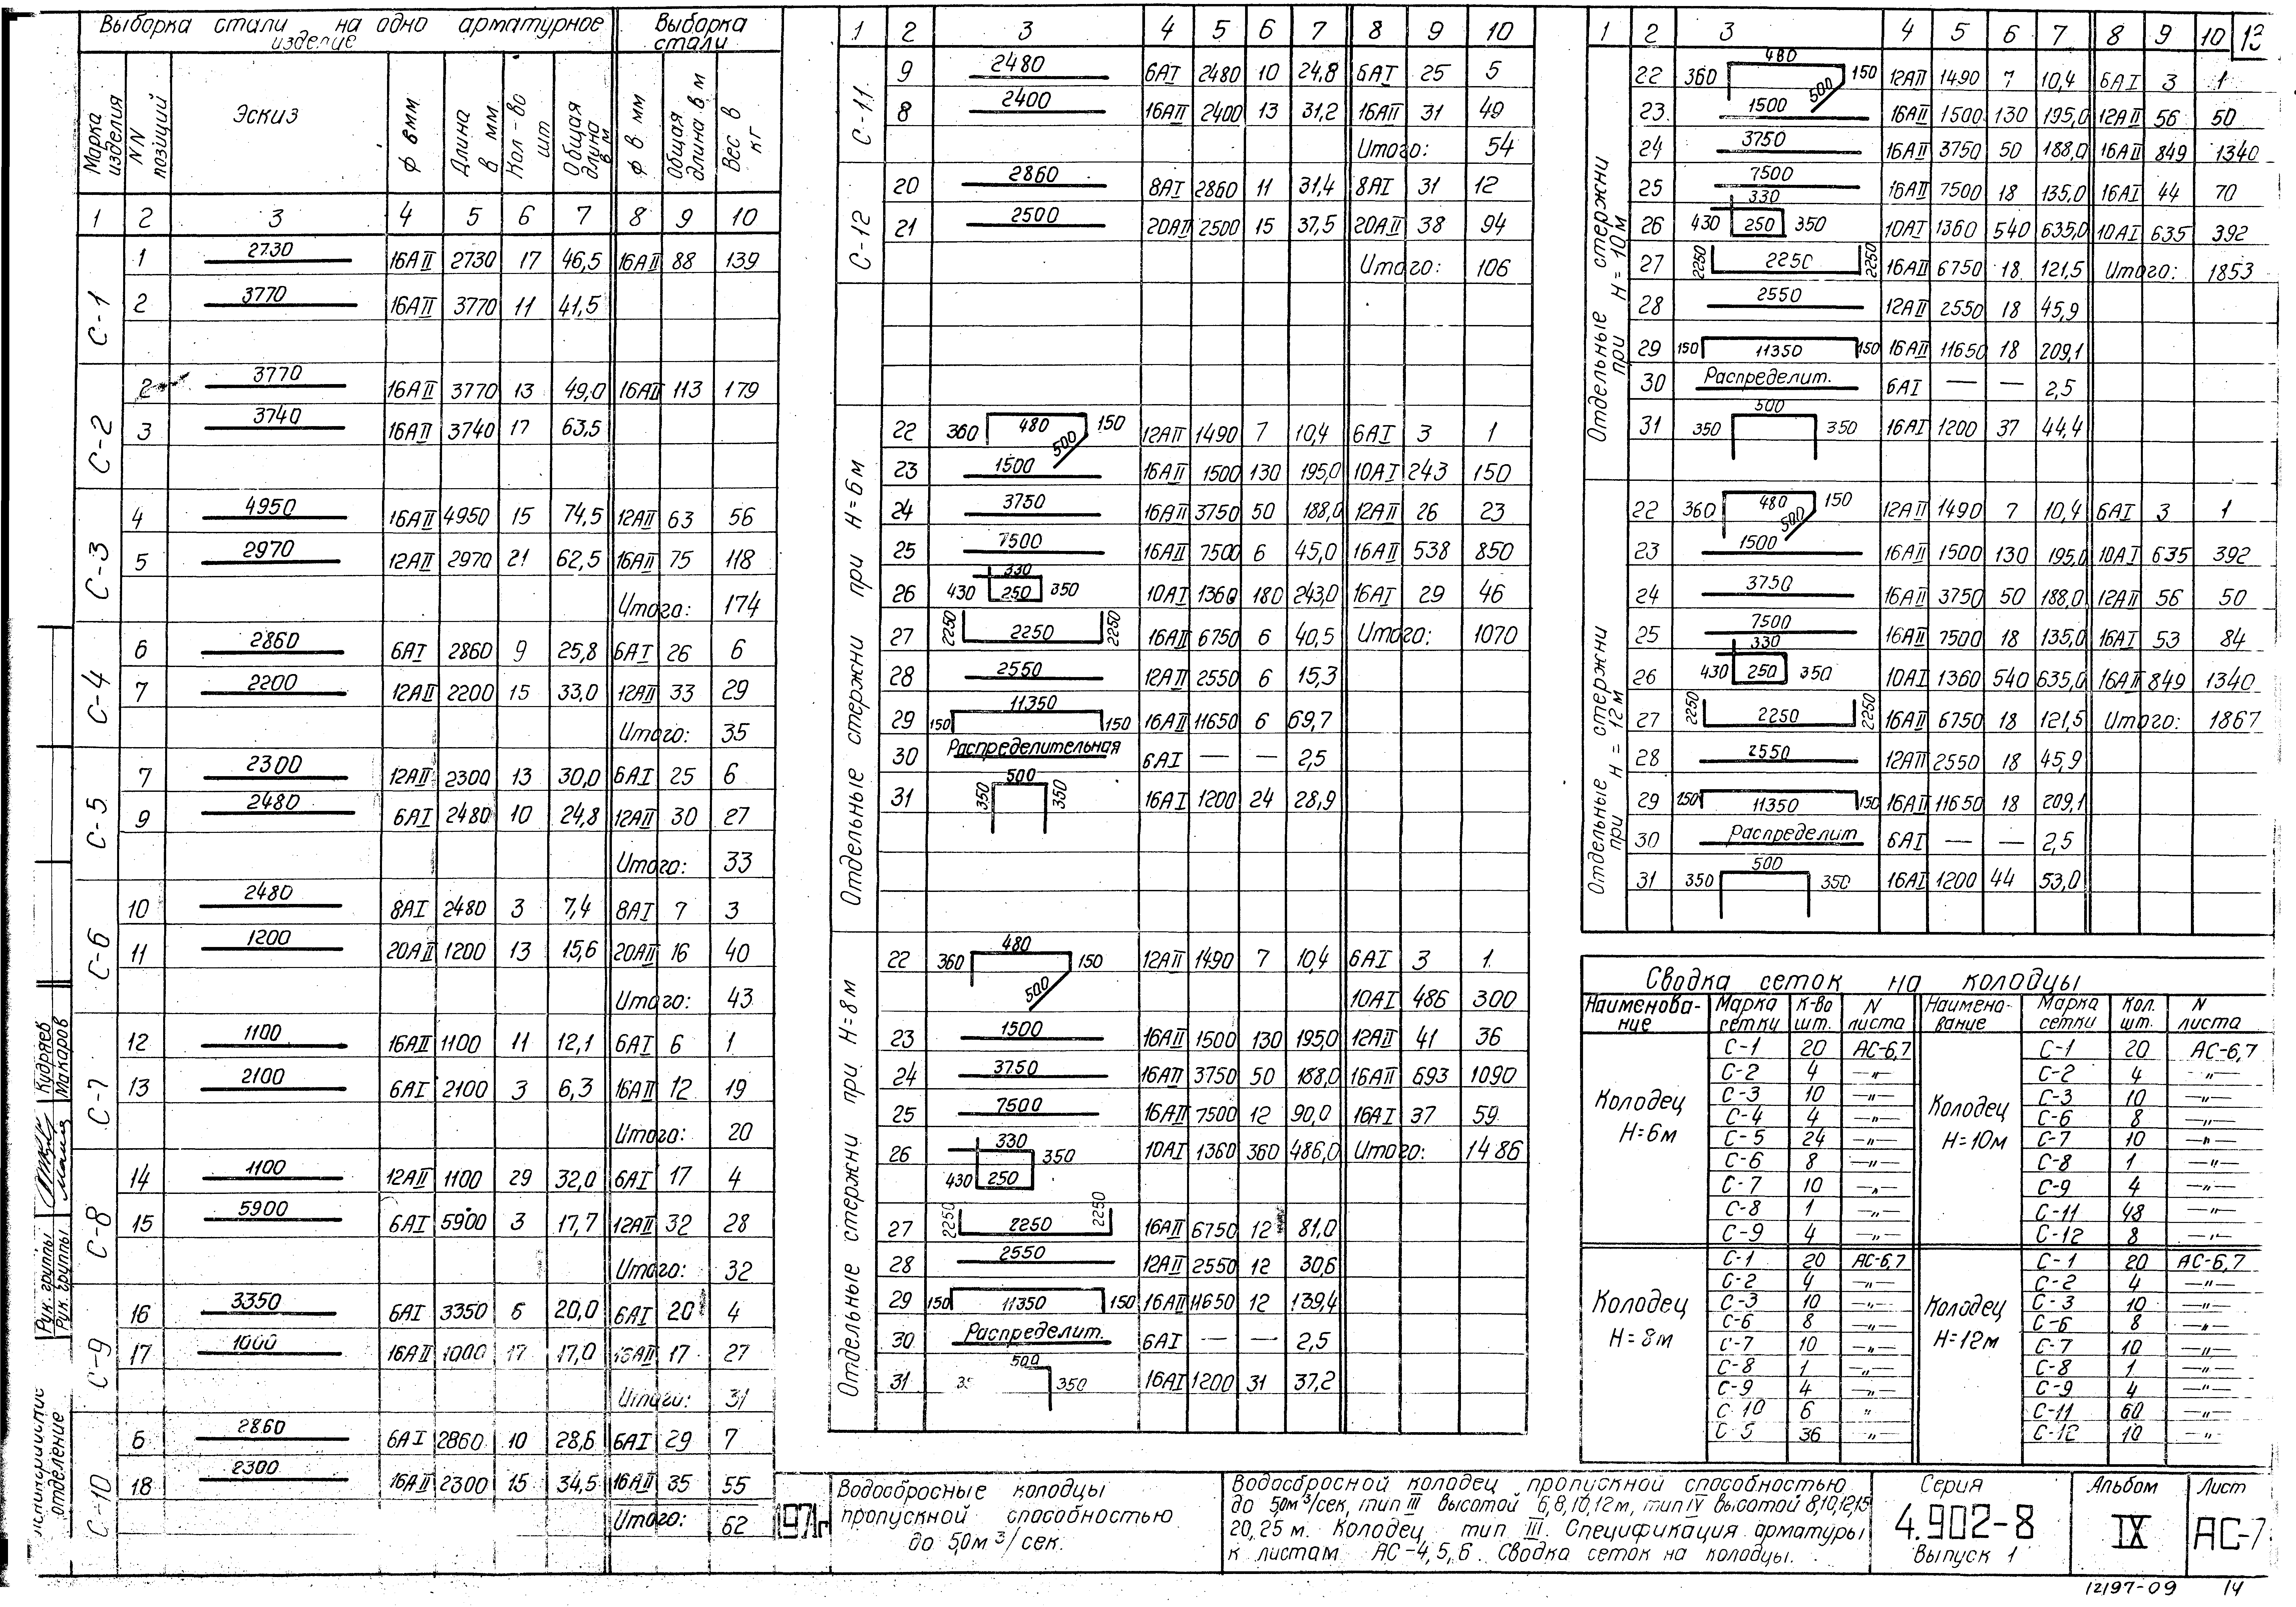 Выборка стали на одно арматурное изделие
Выборка стали
Марка изделия
NN позиций
Эскиз
ф вмм
Длина в мм
Кол-во шт
Общая длина в м
ф в мм
Общая длина в м
Вес в кг
1 2 3 4 5 6 7 8 9 10
С-1
1 2730 16АII 2730 17 46,5 16АII 88 139
2 3770 16АII 3770 11 41,5
С-2
2 3770 16АII 3770 13 49,0 16АII 113 179
3 3740 16АII 3740 17 63,5
С-3
4 4950 16АII 4950 15 74,5 12АII 63 56
5 2970 12АII 2970 21 62,5 16АII 75 118
Итого: 174
С-4
6 2860 6АI 2860 9 25,8 6АI 26 6
7 2200 12АII 2200 15 33,0 12АII 33 29
Итого: 35
С-5
7 2300 12АII 2300 13 30,0 6АI 25 6
9 2480 6АI 2480 10 24,8 12АII 30 27
Итого: 33
С-6
10 2480 8АI 2480 3 7,4 8АI 7 3
11 1200 20АII 1200 13 15,6 20АII 16 40
Итого: 43
С-7
12 1100 16АII 1100 11 12,1 6АI 6 1
13 2100 6АI 2100 3 6,3 16АII 12 19
Итого: 20
С-8
14 1100 12АII 1100 29 32,0 6АI 17 4
15 5900 6АI 5900 3 17,7 12АII 32 28
Итого: 32
С-9
16 3350 6АI 3350 6 20,0 6АI 20 4
17 1000 16АII 1000 17 17,0 16АII 17 27
Итого: 31
С-10
6 2860 6АI 2860 10 28,6 6АI 29 7
18 2300 16АII 2300 15 34,5 16АII 35 55
Итого: 62
1 2 3 4 5 6 7 8 9 10
С-11
9 2480 6АI 2480 10 24,8 6АI 25 5
8 2400 16АII 2400 13 31,2 16АII 31 49
Итого: 54
С-12
20 2860 8АI 2860 11 31,4 8АI 31 12
21 2500 20АII 2500 15 37,5 20АII 38 94
Итого: 106
Отдельные стержни при Н=6м
22 360 480 150 500 12АII 1490 7 10,4 6АI 3 1
23 1500 16АII 1500 130 195,0 10АI 243 150
24 3750 16АII 3750 50 188,0 12АII 26 23
25 7500 16АII 7500 6 45,0 16АII 538 850
26 430 330 250 350 10АI 1360 180 243,0 16АI 29 46
27 2250 2250 2250 16АII 6750 6 40,5 Итого: 1070
28 2550 12АII 2550 6 15,3
29 150 11350 150 16АII 11650 6 69,7
30 Распределительная 6АI — — 2,5
31 350 500 350 16АI 1200 24 28,9
Отдельные стержни при Н=8м
22 360 480 150 500 12АII 1490 7 10,4 6АI 3 1
10АI 486 300
23 1500 16АII 1500 130 195,0 12АII 41 36
24 3750 16АII 3750 50 188,0 16АII 693 1090
25 7500 16АII 7500 12 90,0 16АI 37 59
26 330 350 430 250 10АI 1360 360 486,0 Итого: 1486
27 2250 2250 2250 16АII 6750 12 81,0
28 2550 12АII 2550 12 30,6
29 150 11350 150 16АII 11650 12 139,4
30 Распределит. 6АI — — 2,5
31 500 350 16АI 1200 31 37,2
1 2 3 4 5 6 7 8 9 10 13
Отдельные стержни при Н = 10м
22 360 480 150 500 12АII 1490 7 10,4 6АI 3 1
23 1500 16АII 1500 130 195,0 12АII 56 50
24 3750 16АII 3750 50 188,0 16АII 849 1340
25 7500 16АII 7500 18 135,0 16АI 44 70
26 430 330 250 350 10АI 1360 540 635,0 10АI 635 392
27 2250 2250 2250 16АII 6750 18 121,5 Итого: 1853
28 2550 12АII 2550 18 45,9
29 150 11350 150 16АII 11650 18 209,1
30 Распределит. 6АI — — 2,5
31 350 500 350 16АI 1200 37 44,4
Отдельные стержни при Н = 12м
22 360 480 150 500 12АII 1490 7 10,4 6АI 3 1
23 1500 16АII 1500 130 195,0 10АI 635 392
24 3750 16АII 3750 50 188,0 12АII 56 50
25 7500 16АII 7500 18 135,0 16АI 53 84
26 430 330 250 350 10АI 1360 540 635,0 16АII 849 1340
27 2250 2250 2250 16АII 6750 18 121,5 Итого: 1867
28 2550 12АII 2550 18 45,9
29 150 11350 150 16АII 11650 18 209,1
30 Распределит 6АI — — 2,5
31 350 500 350 16АI 1200 44 53,0
Сводка сеток на колодцы
Наименование Марка сетки К-во шт. N листа Наименование Марка сетки Кол. шт. N листа
Колодец Н=6м
С-1 20 АС-6,7
С-2 4 —„—
С-3 10 —„—
С-4 4 —„—
С-5 24 —„—
С-6 8 —„—
С-7 10 —„—
С-8 1 —„—
С-9 4 —„—
Колодец Н=10м
С-1 20 АС-6,7
С-2 4 —„—
С-3 10 —„—
С-6 8 —„—
С-7 10 —„—
С-8 1 —„—
С-9 4 —„—
С-11 48 —„—
С-12 8 —„—
Колодец Н=8м
С-1 20 АС-6,7
С-2 4 —„—
С-3 10 —„—
С-6 8 —„—
С-7 10 —„—
С-8 1 —„—
С-9 4 —„—
С 10 6 „
С 5 36 —„—
Колодец Н=12м
С-1 20 АС-6,7
С-2 4 —„—
С-3 10 —„—
С-6 8 —„—
С-7 10 —„—
С-8 1 —„—
С-9 4 —„—
С-11 60 —„—
С-12 10 —„—
Кудряев
Макаров
Рук. группы
Рук. группы
отделение
1971г
Водосбросные колодцы
пропускной способностью
до 5,0м³/сек.
Водосбросной колодец пропускной способностью
до 5,0м³/сек, тип III высотой 6,8,10,12м, тип IV высотой 8,10,12,15
20,25 м. Колодец тип III. Спецификация арматуры
к листам АС-4,5,6. Сводка сеток на колодцы.
Серия
4.902-8
Выпуск 1
Альбом
IX
Лист
АС-7
12197-09 14